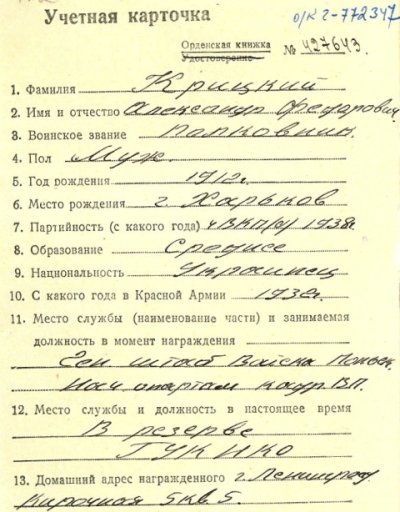 Учетная карточка
о/к г-772347
Орденская книжка
Удостоверение № 427643.
1. Фамилия Крицкий
2. Имя и отчество Александр Федарович
3. Воинское звание Полковник
4. Пол Муж.
5. Год рождения 1912г.
6. Место рождения г. Харьков
7. Партийность (с какого года) ч ВКП/б/ 1938г
8. Образование Среднее
9. Национальность Украинец
10. С какого года в Красной Армии 1932г.
11. Место службы (наименование части) и занимаемая
должность в момент награждения
Ген штаб Войска Польск.
Нач. ВП.
12. Место службы и должность в настоящее время
В резерве
ГУК
13. Домашний адрес награжденного г. Ленинград
Кирочная 5 кв. 5.